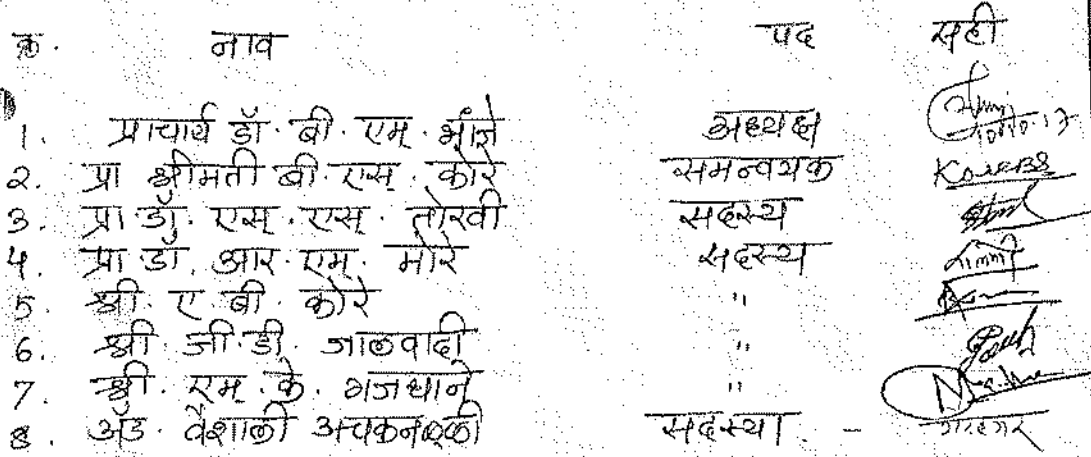 क्र. नाव पद सही
1. प्राचार्य डॉ. बी. एम्. भांजे अध्यक्ष
2. प्रा श्रीमती बी. एस्. कोरे समन्वयक KoreBS
3. प्रा. डॉ. एस्. एस्. तोरवी सदस्य
4. प्रा. डॉ. आर. एम्. मोरे सदस्य
5. श्री. ए. बी. कोरे "
6. श्री. जी. डी. जालवादी "
7. श्री. एम्. के. गजधाने "
8. अॅड. वैशाली सदस्या -